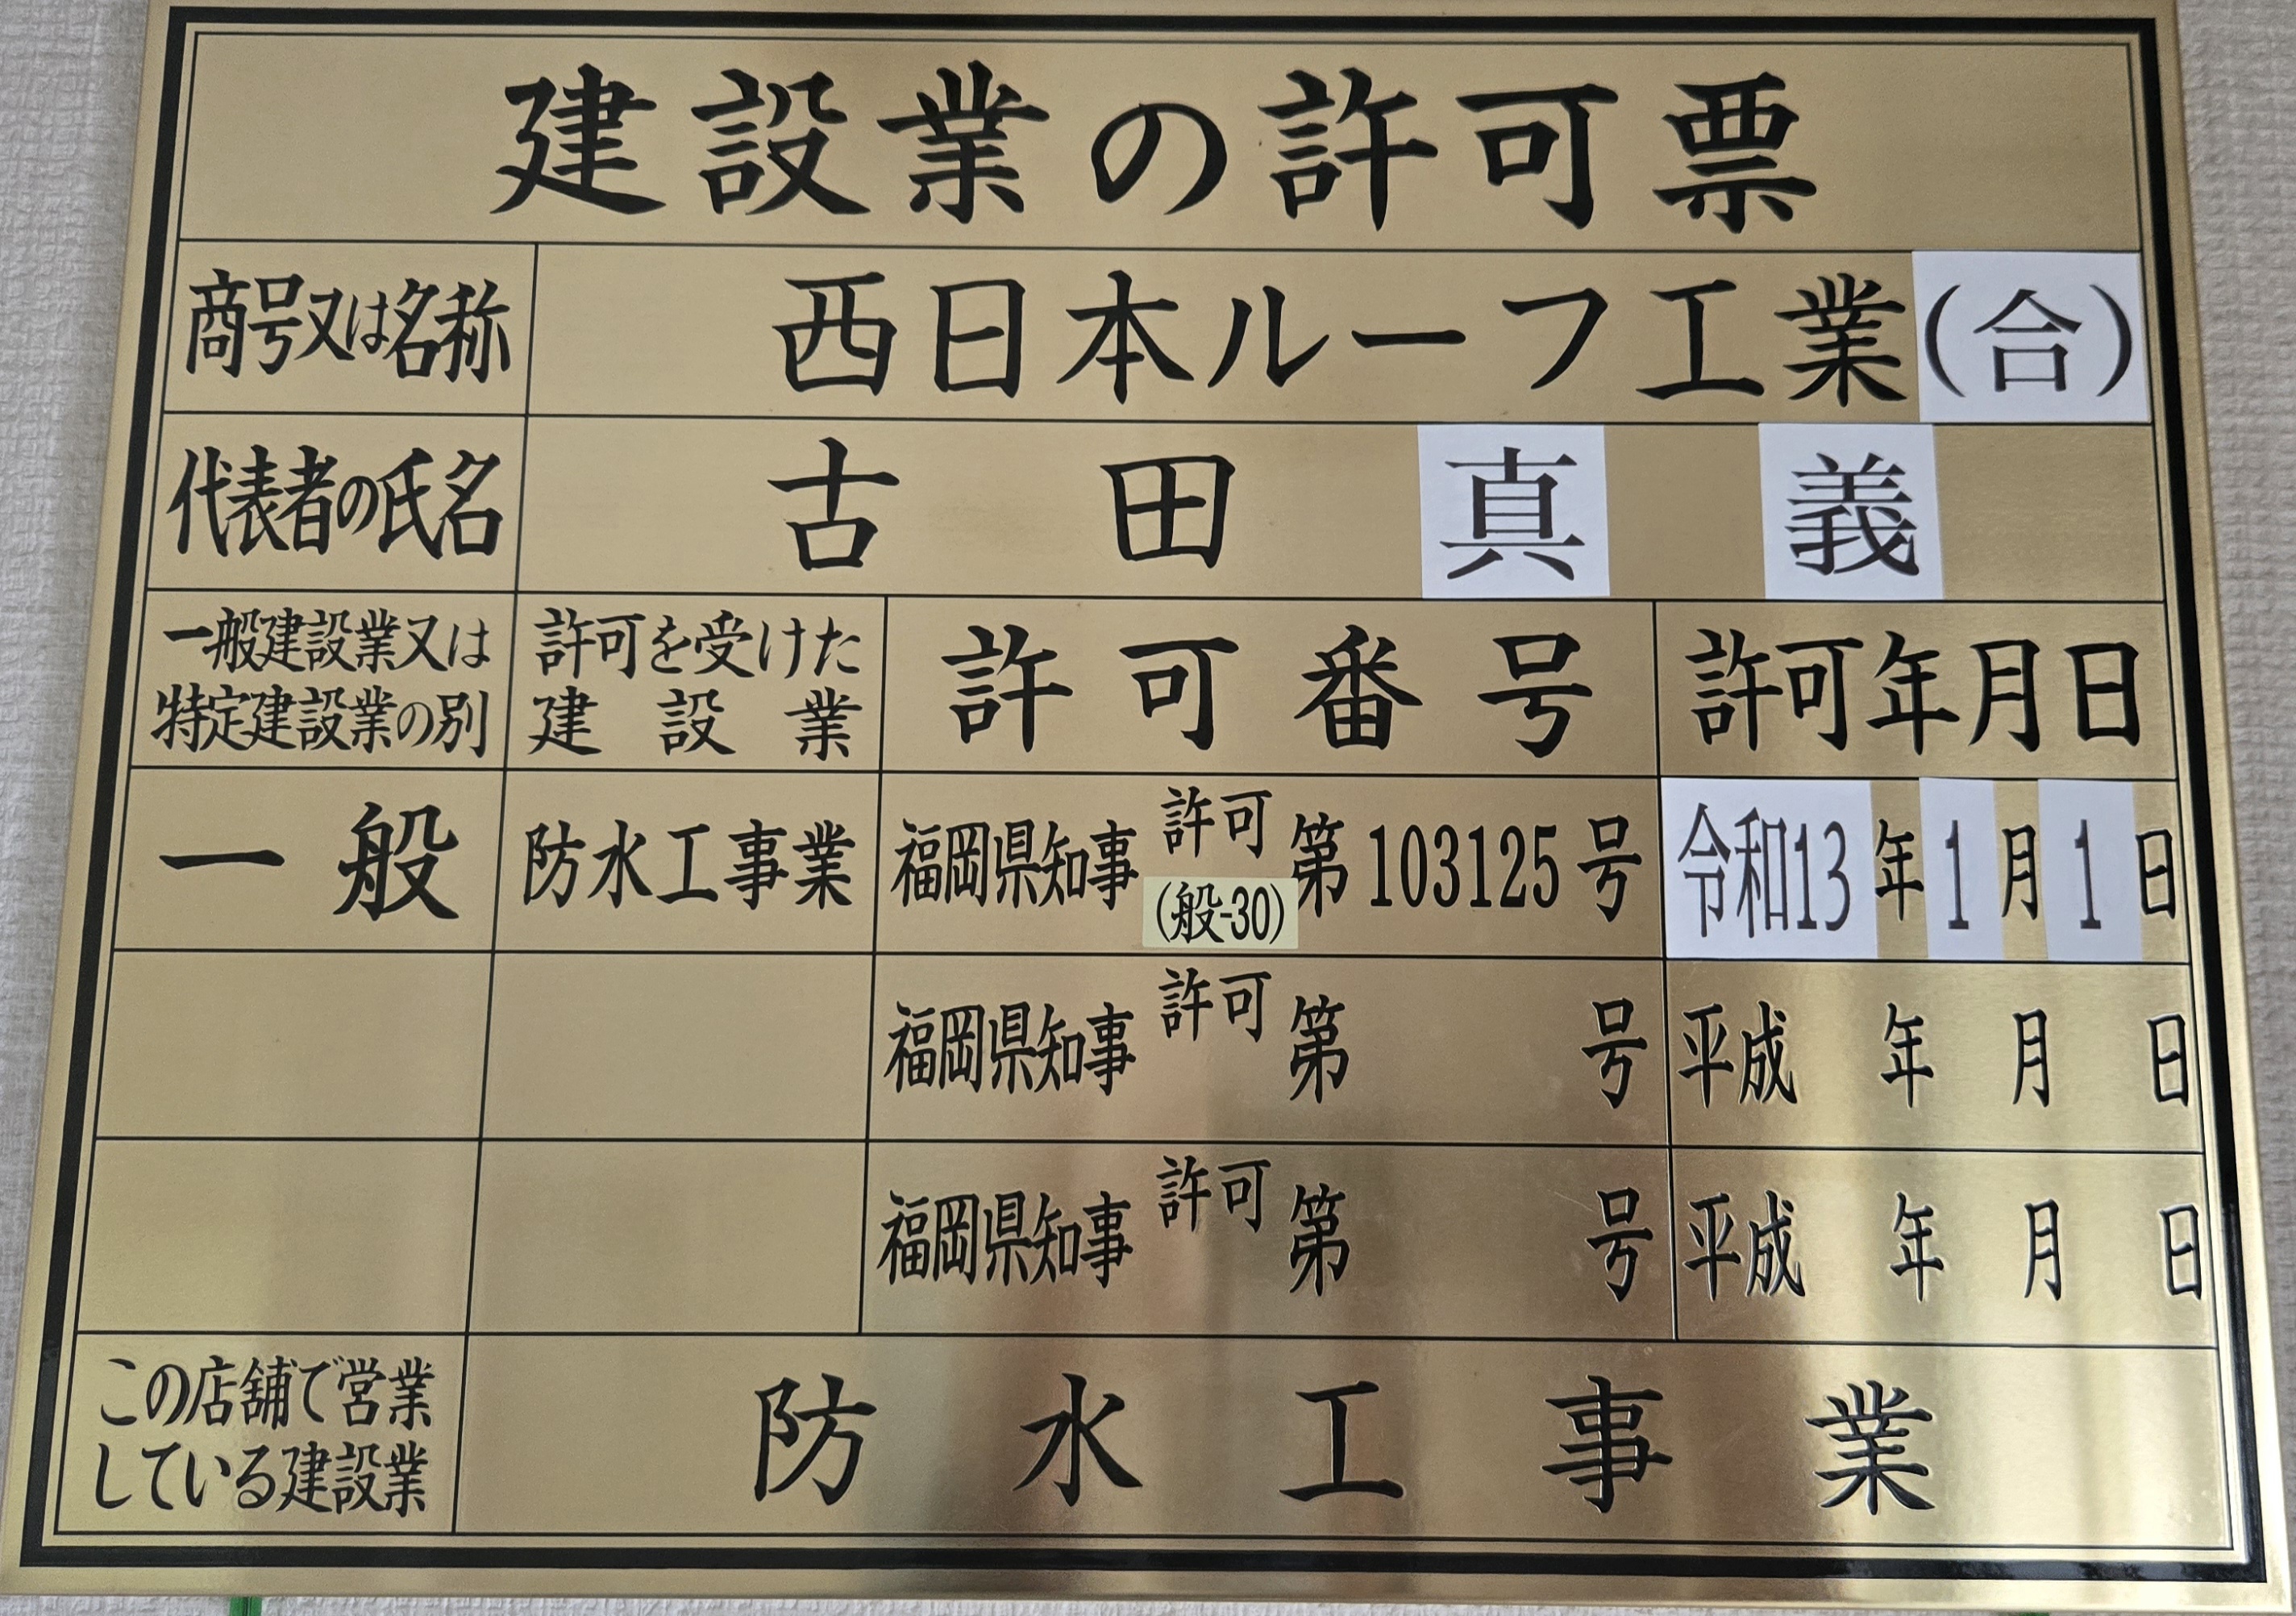 建設業の許可票
商号又は名称 西日本ルーフ工業(合)
代表者の氏名 古田真義
一般建設業又は
特定建設業の別
許可を受けた
建設業
許可番号
許可年月日
一般 防水工事業 福岡県知事 許可(般-30) 第103125号 令和13年1月1日
福岡県知事 許可 第 号 平成 年 月 日
福岡県知事 許可 第 号 平成 年 月 日
この店舗で営業
している建設業
防水工事業